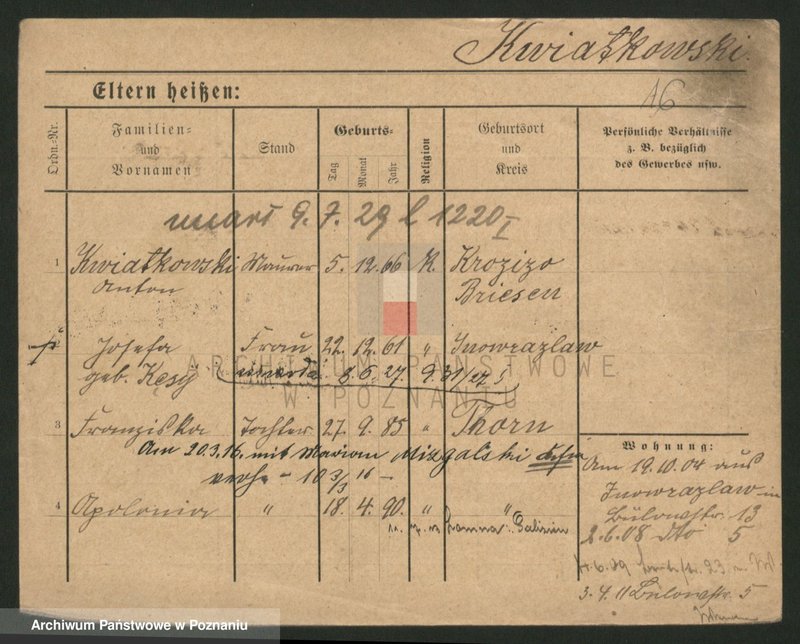 Kwiatkowski.
16
Eltern heißen:
Ordn.-Nr.
Familien-
und
Vornamen
Stand
Geburts-
Tag
Monat
Jahr
Religion
Geburtsort
und
Kreis
Persönliche Verhältnisse
z. B. bezüglich
des Gewerbes usw.
9. 7. 29 1220 I
1 Kwiatkowski Maurer 5. 12. 66 K.
Anton
Briesen
Josefa Frau 22. 12. 61 " Inowrazlaw
geb. Kesy umarła 8. 6. 27.
3 Franziska Tochter 27. 9. 85 " Thorn
Am 20.3.16. mit Marian Mizgalski
10 3/3 16 -
4 Apolonia " 18. 4. 90. " "
Wohnung:
Am 19.10.04 aus
Inowrazlaw
Bülowstr. 13
2.6.08 dto 5
23
3. 4. 11 Bülowstr. 5
ARCHIWUM PAŃSTWOWE
W POZNANIU
Archiwum Państwowe w Poznaniu